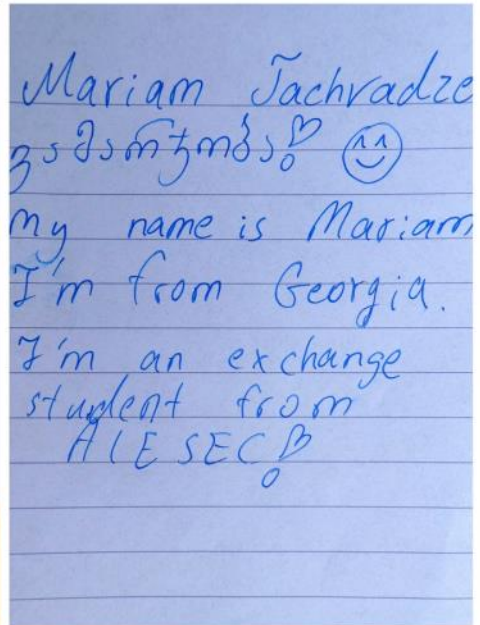 Mariam Jachvadze
გამარჯობა!
My name is Mariam
I'm from Georgia.
I'm an exchange
student from
AIESEC!